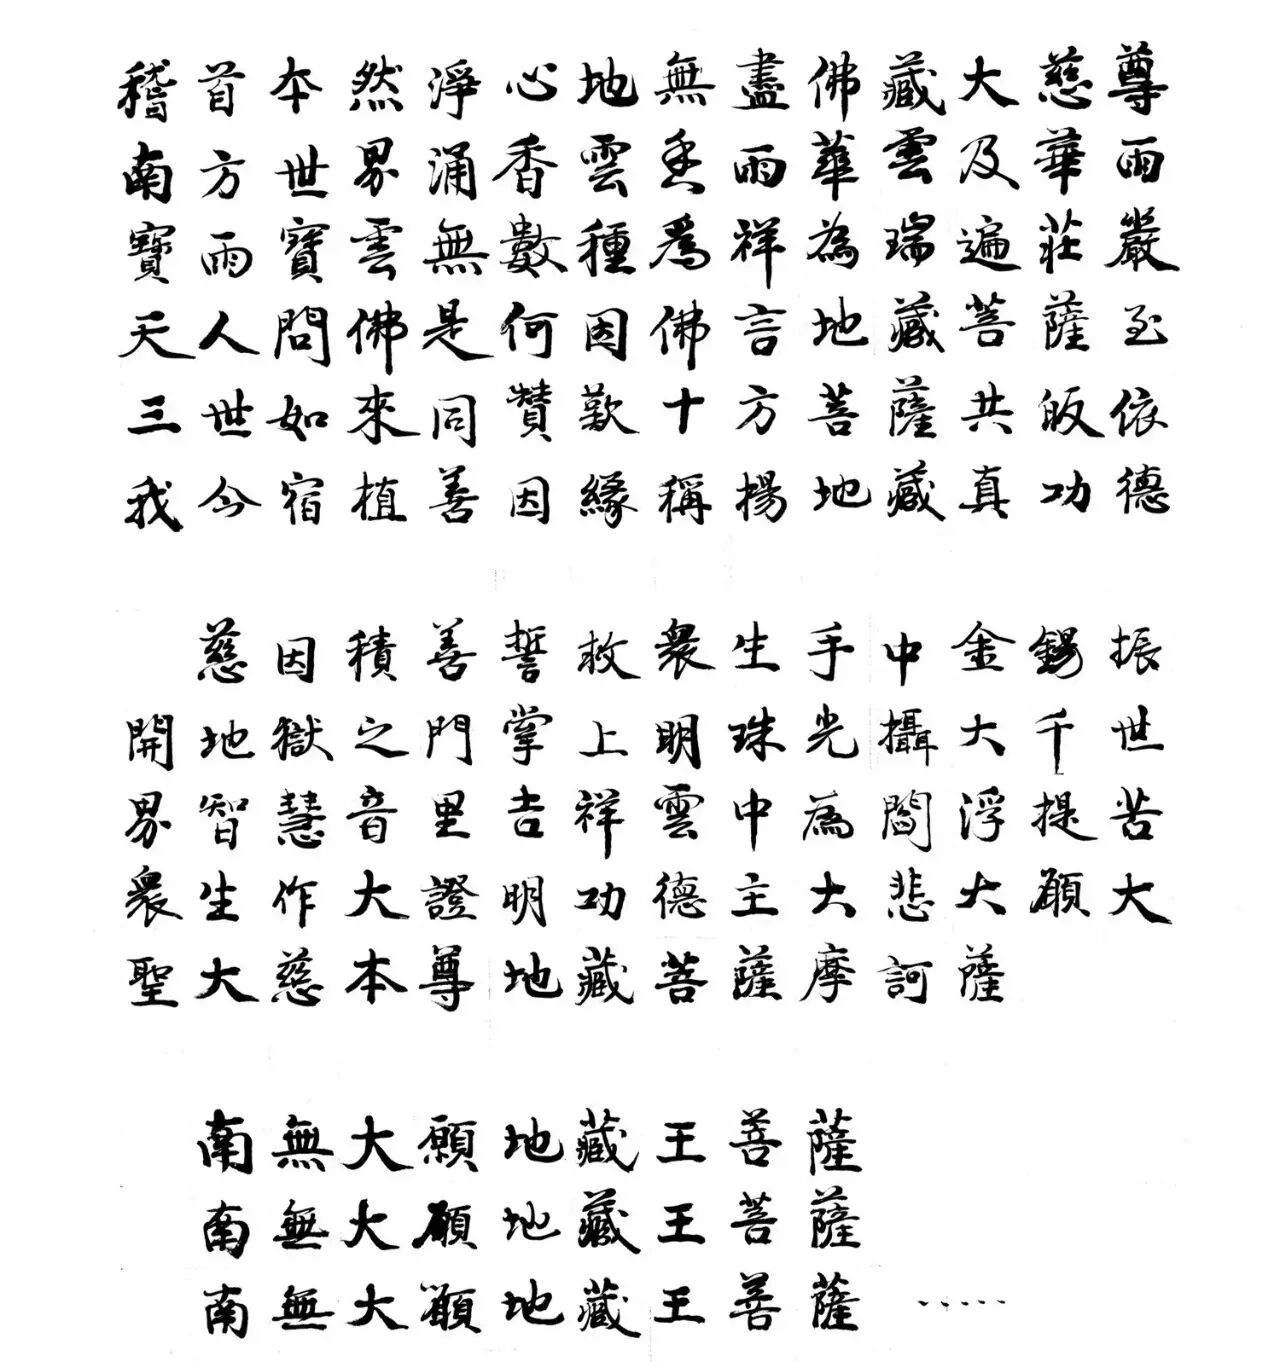 稽首本然淨心地無盡佛藏大慈尊
南方世界涌香雲香雨華雲及華雨
寶雨寶雲無數種為祥為瑞遍莊嚴
天人問佛是何因佛言地藏菩薩至
三世如來同贊歎十方菩薩共皈依
我今宿植善因緣稱揚地藏真功德
慈因積善誓救衆生手中金錫振
開地獄之門掌上明珠光攝大千世
界智慧音里吉祥雲中為閻浮提苦
衆生作大證明功德主大悲大願大
聖大慈本尊地藏菩薩摩訶薩
南無大願地藏王菩薩
南無大願地藏王菩薩
南無大願地藏王菩薩 ·····